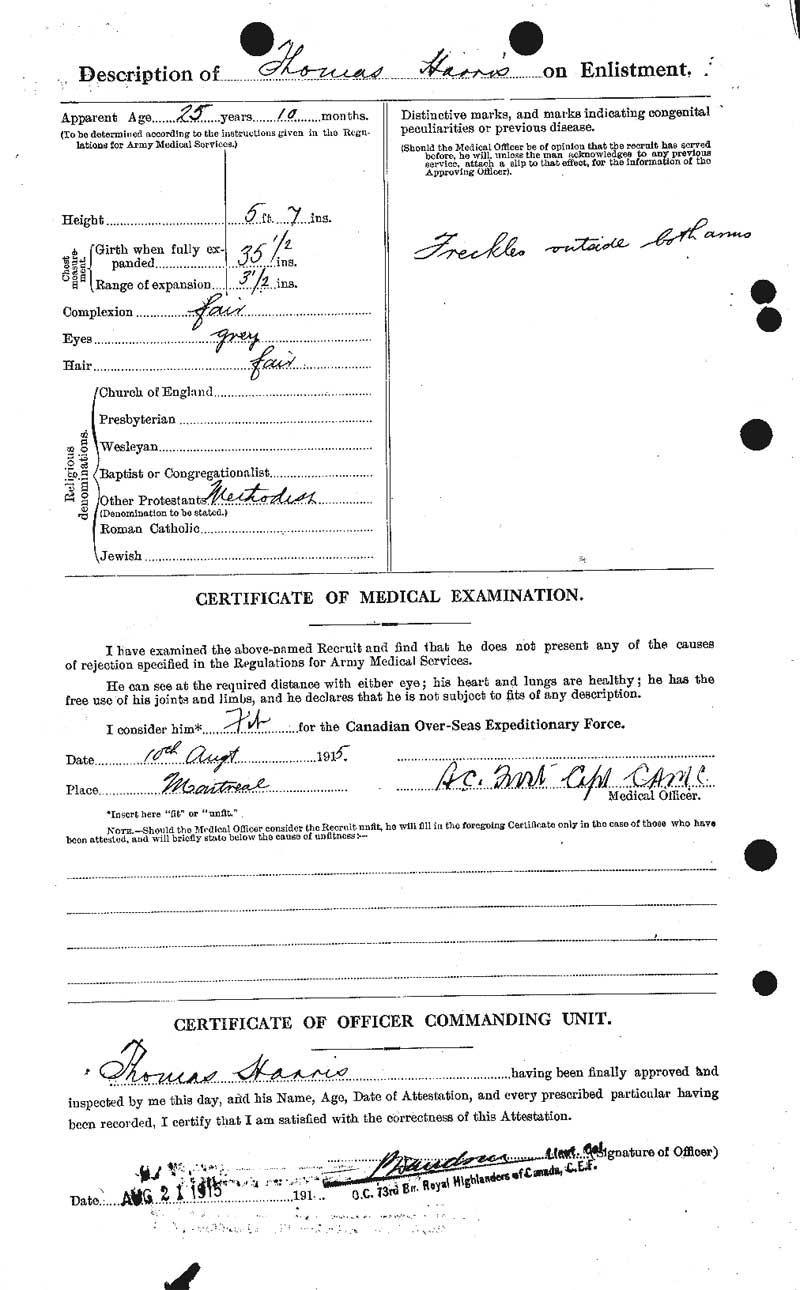 Description of Thomas Harris on Enlistment.
Apparent Age 25 years 10 months.
(To be determined according to the instructions given in the Regu-
lations for Army Medical Services.)
Height 5 ft. 7 ins.
Chest measure-ment.
Girth when fully ex-
panded 35 1/2 ins.
Range of expansion 3 1/2 ins.
Complexion fair
Eyes grey
Hair fair
Religious denominations.
Church of England
Presbyterian
Wesleyan
Baptist or Congregationalist
Other Protestants Methodist
(Denomination to be stated.)
Roman Catholic
Jewish
Distinctive marks, and marks indicating congenital
peculiarities or previous disease.
(Should the Medical Officer be of opinion that the recruit has served
before, he will, unless the man acknowledges to any previous
service, attach a slip to that effect, for the information of the
Approving Officer).
Freckles outside both arms
CERTIFICATE OF MEDICAL EXAMINATION.
I have examined the above-named Recruit and find that he does not present any of the causes
of rejection specified in the Regulations for Army Medical Services.
He can see at the required distance with either eye; his heart and lungs are healthy; he has the
free use of his joints and limbs, and he declares that he is not subject to fits of any description.
I consider him* Fit for the Canadian Over-Seas Expeditionary Force.
Date 10th Augt 1915.
Place Montreal
Capt C.A.M.C.
Medical Officer.
*Insert here "fit" or "unfit."
NOTE.—Should the Medical Officer consider the Recruit unfit, he will fill in the foregoing Certificate only in the case of those who have
been attested, and will briefly state below the cause of unfitness:—
CERTIFICATE OF OFFICER COMMANDING UNIT.
Thomas Harris having been finally approved and
inspected by me this day, and his Name, Age, Date of Attestation, and every prescribed particular having
been recorded, I certify that I am satisfied with the correctness of this Attestation.
Lieut. Col. (Signature of Officer)
O.C. 73rd Bn. Royal Highlanders of Canada, C.E.F.
Date AUG 21 1915 191